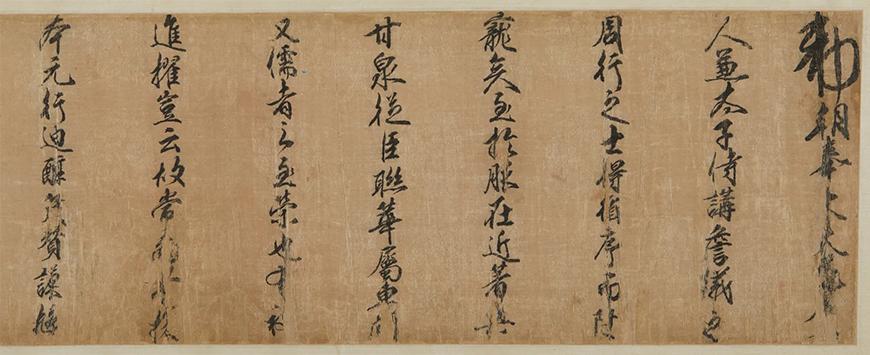 敕朝奉大夫
人兼太子侍講詹儀之
周行之士得循序而陞
寵矣至於服在近著
甘泉從臣聯華屬車
又儒者之至榮也
進擢豈云故常
本元行迪醇 贊謀猷